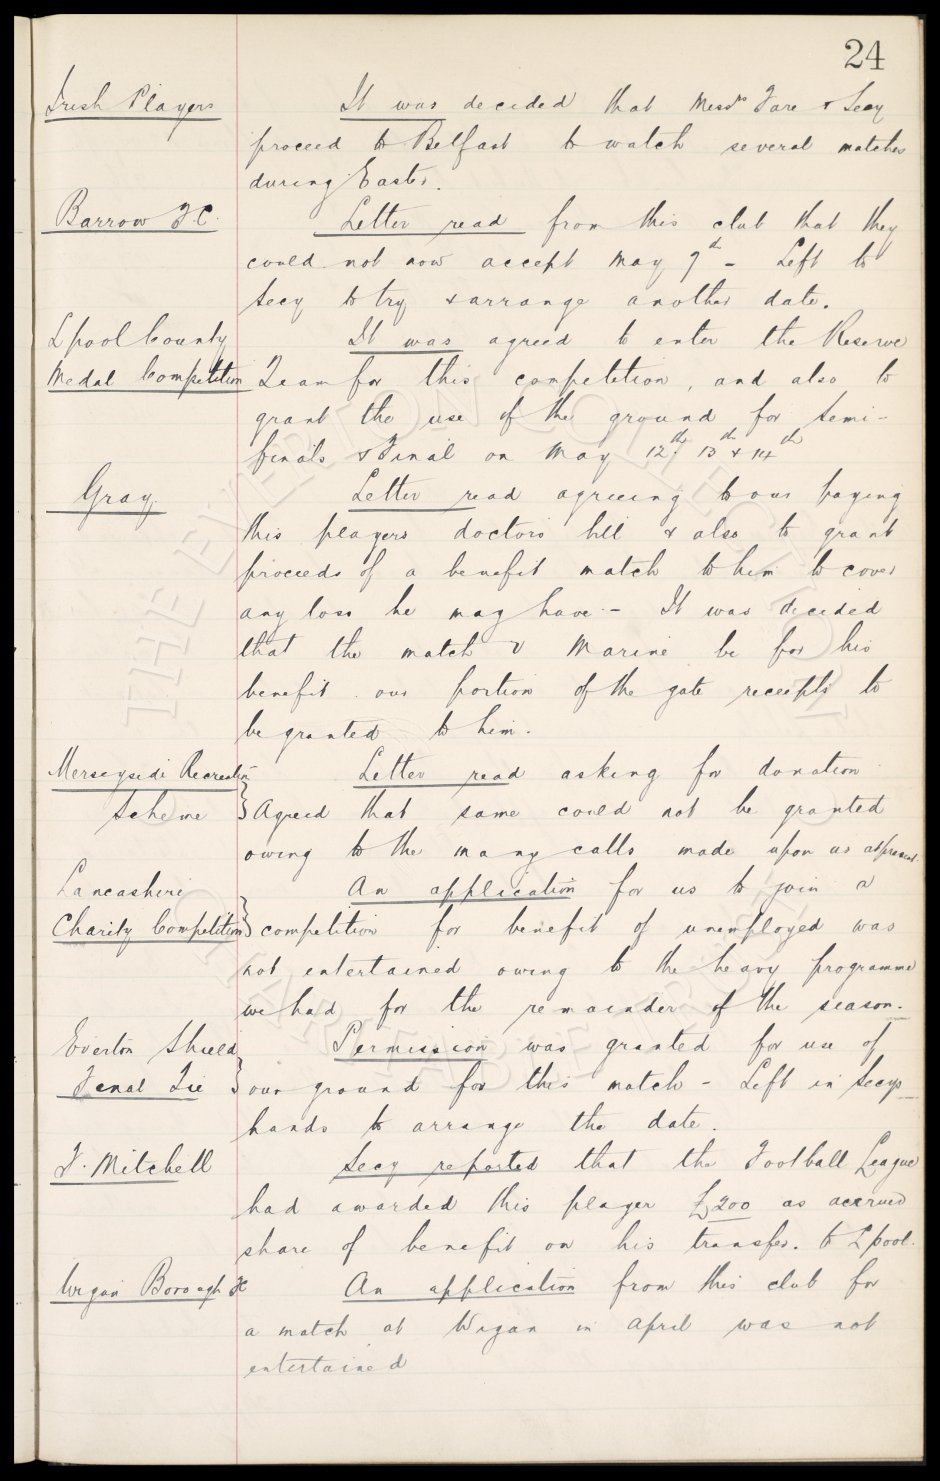 24
Irish Players
It was decided that Messrs Fare & Secy
proceed to Belfast to watch several matches
during Easter.
Barrow F.C.
Letter read from this club that they
could not now accept May 9th - Left to
Secy to try & arrange another date.
Lpool County
Medal Competition
It was agreed to enter the Reserve
Team for this competition, and also to
grant the use of the ground for Semi-
finals & Final on May 12th 13th & 14th
Gray.
Letter read agreeing to our paying
this players doctors bill & also to grant
proceeds of a benefit match to him to cover
any loss he may have - It was decided
that the match v Marine be for his
benefit our portion of the gate receipts to
be granted to him.
Merseyside Recreation
Scheme
Letter read asking for donation
Agreed that same could not be granted
owing to the many calls made upon us at present.
Lancashire
Charity Competition
An application for us to join a
competition for benefit of unemployed was
not entertained owing to the heavy programme
we had for the remainder of the season.
Everton Shield
Final Tie
Permission was granted for use of
our ground for this match - Left in Secys
hands to arrange the date.
F. Mitchell
Secy reported that the Football League
had awarded this player £200 as accrued
share of benefit on his transfer to Lpool.
Wigan Borough FC
An application from this club for
a match at Wigan in April was not
entertained
THE EVERTON COLLECTION
CHARITABLE TRUST